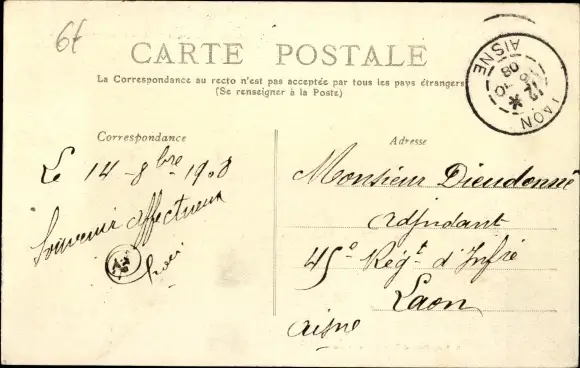 6f
CARTE POSTALE
La Correspondance au recto n'est pas acceptée par tous les pays étrangers
(Se renseigner à la Poste)
LAON
AISNE
08
Correspondance
Adresse
Le 14 - 8bre 1908
Souvenir affectueux
Monsieur Dieudonné
Adjudant
45e Régt d'Infie
Laon
Aisne